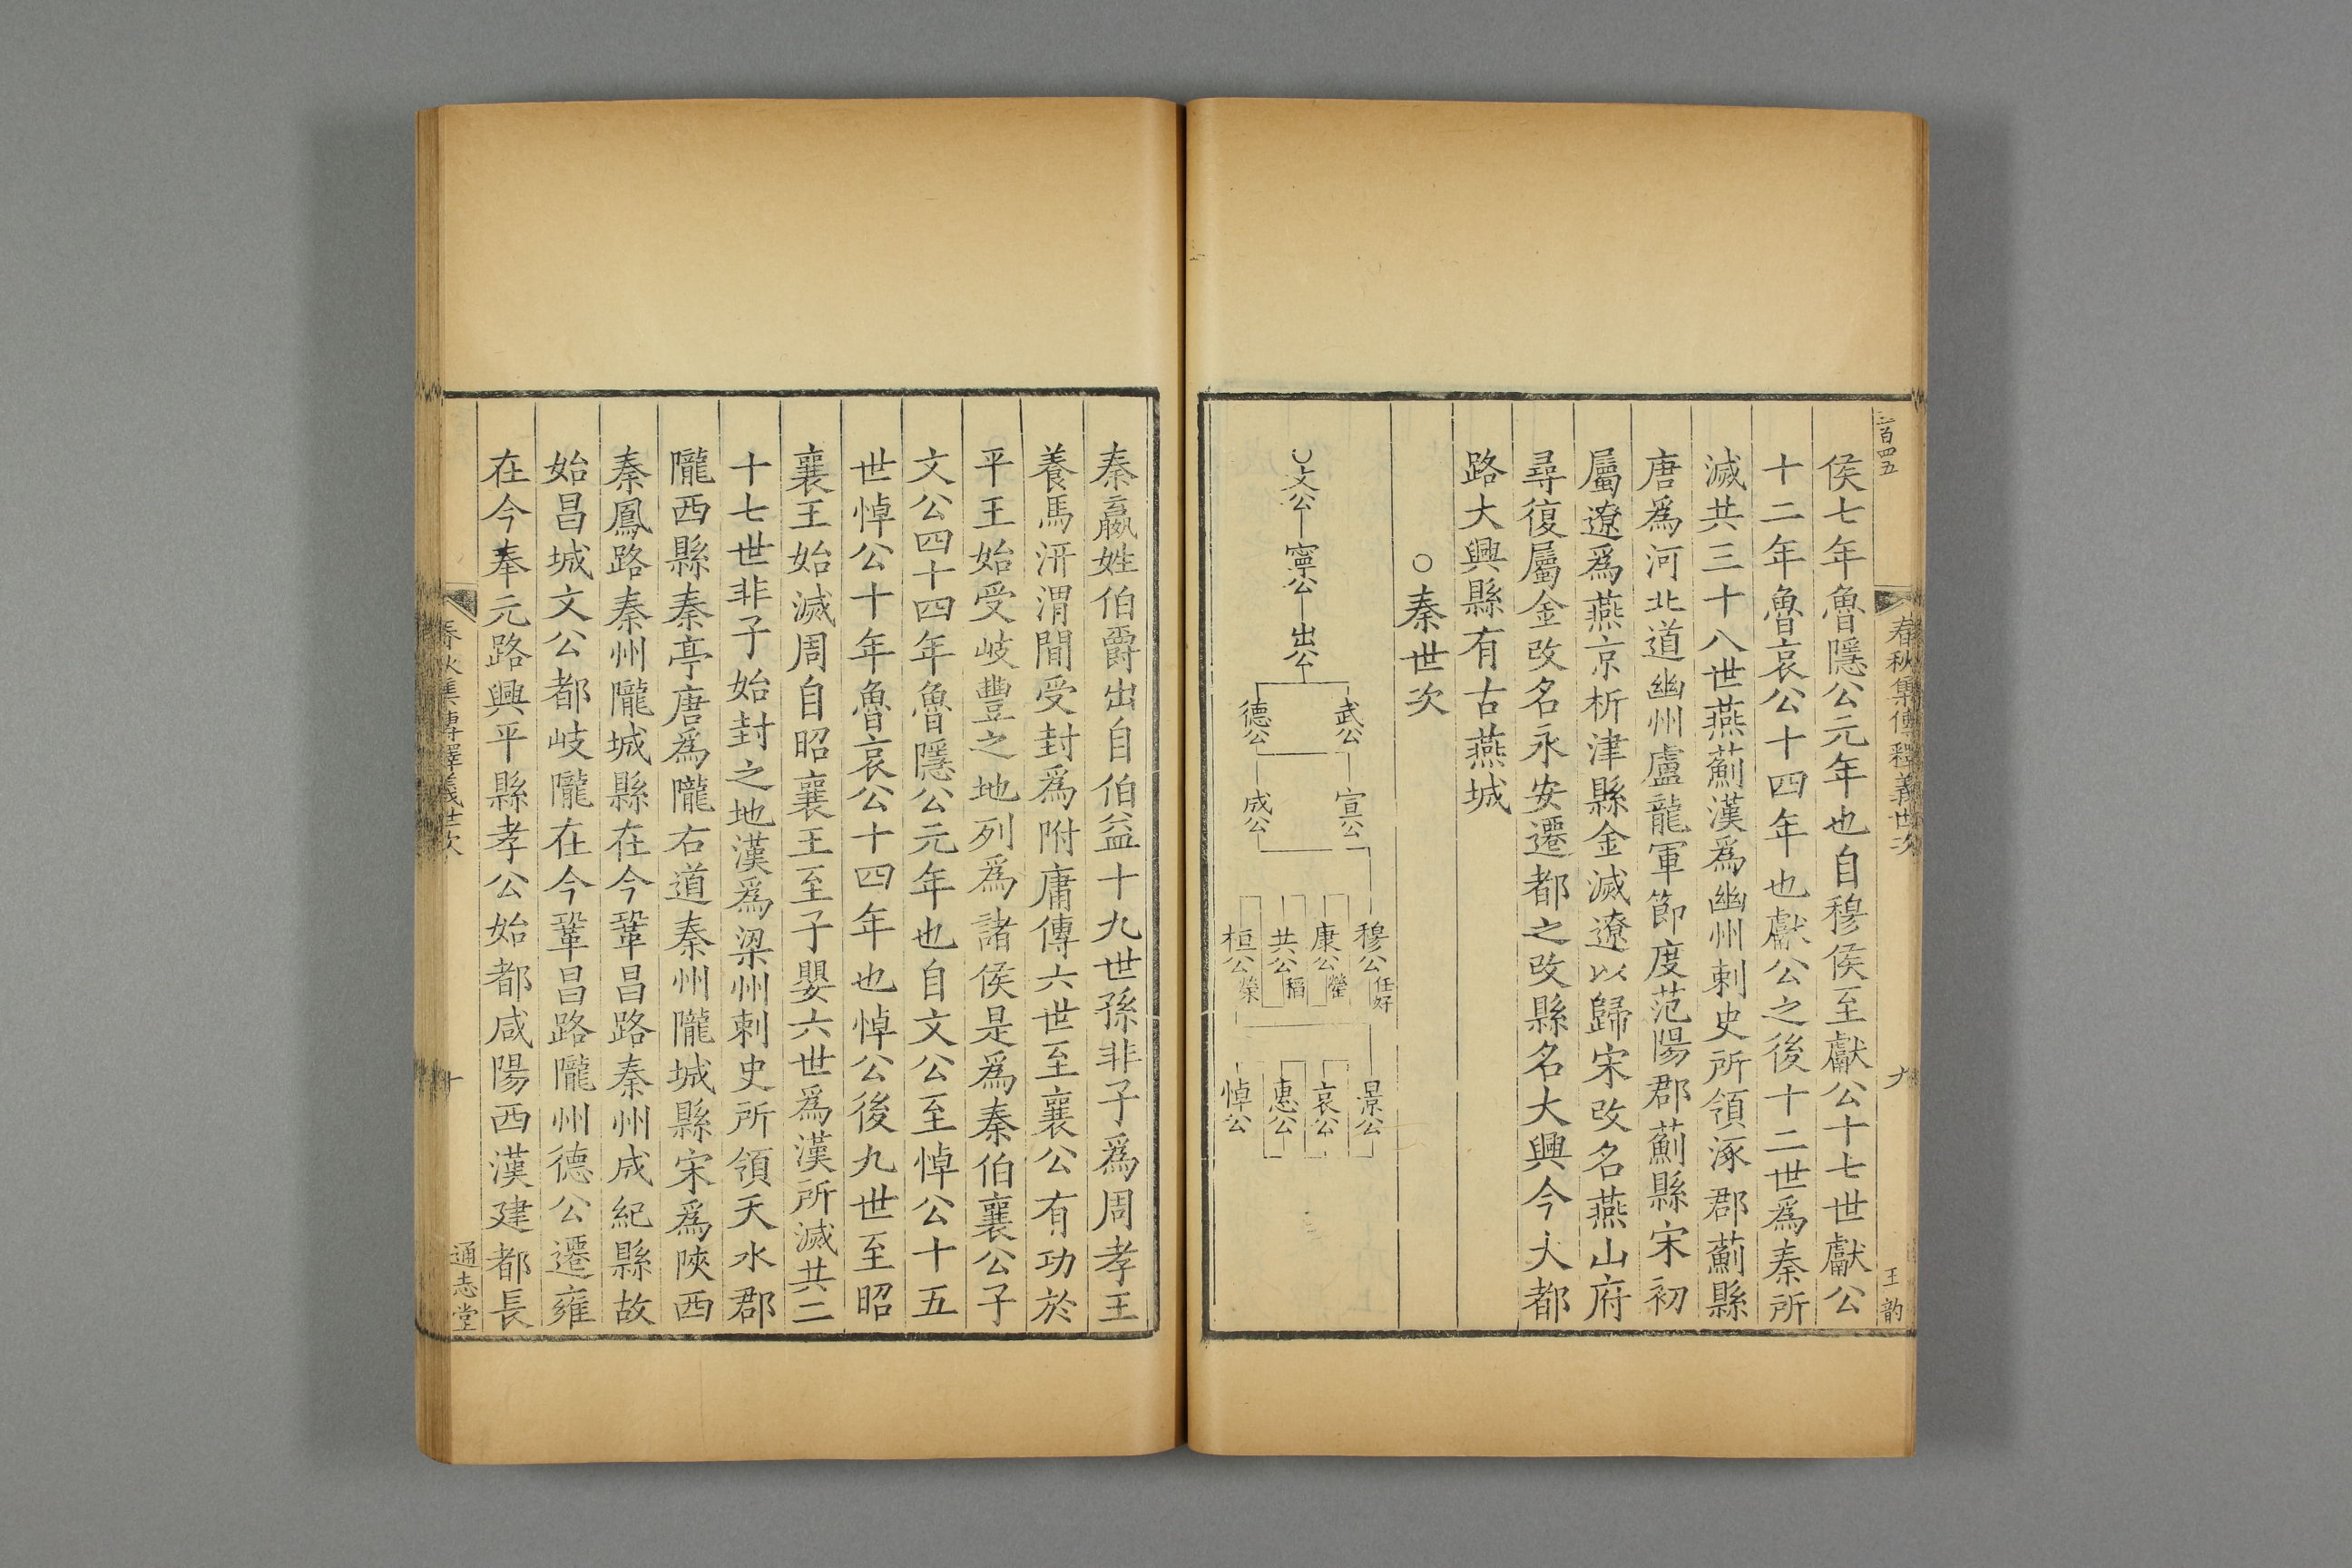 二百四五
春秋集傳釋義世次
九
王韵
侯七年魯隱公元年也自穆侯至獻公十七世獻公
十二年魯哀公十四年也獻公之後十二世爲秦所
滅共三十八世燕薊漢爲幽州刺史所領涿郡薊縣
唐爲河北道幽州盧龍軍節度范陽郡薊縣宋初
屬遼爲燕京析津縣金滅遼以歸宋改名燕山府
尋復屬金改名永安遷都之改縣名大興今大都
路大興縣有古燕城
○秦世次
文公 寧公 出公
武公
德公
宣公
成公
穆公任好
康公罃
共公稻
桓公榮
景公
哀公
惠公
悼公
秦嬴姓伯爵出自伯益十九世孫非子爲周孝王
養馬汧渭間受封爲附庸傳六世至襄公有功於
平王始受岐豐之地列爲諸侯是爲秦伯襄公子
文公四十四年魯隱公元年也自文公至悼公十五
世悼公十年魯哀公十四年也悼公後九世至昭
襄王始滅周自昭襄王至子嬰六世爲漢所滅共二
十七世非子始封之地漢爲梁州刺史所領天水郡
隴西縣秦亭唐爲隴右道秦州隴城縣宋爲陝西
秦鳳路秦州隴城縣在今鞏昌路秦州成紀縣故
始昌城文公都岐隴在今鞏昌路隴州德公遷雍
在今奉元路興平縣孝公始都咸陽西漢建都長
春秋集傳釋義世次
十
通志堂